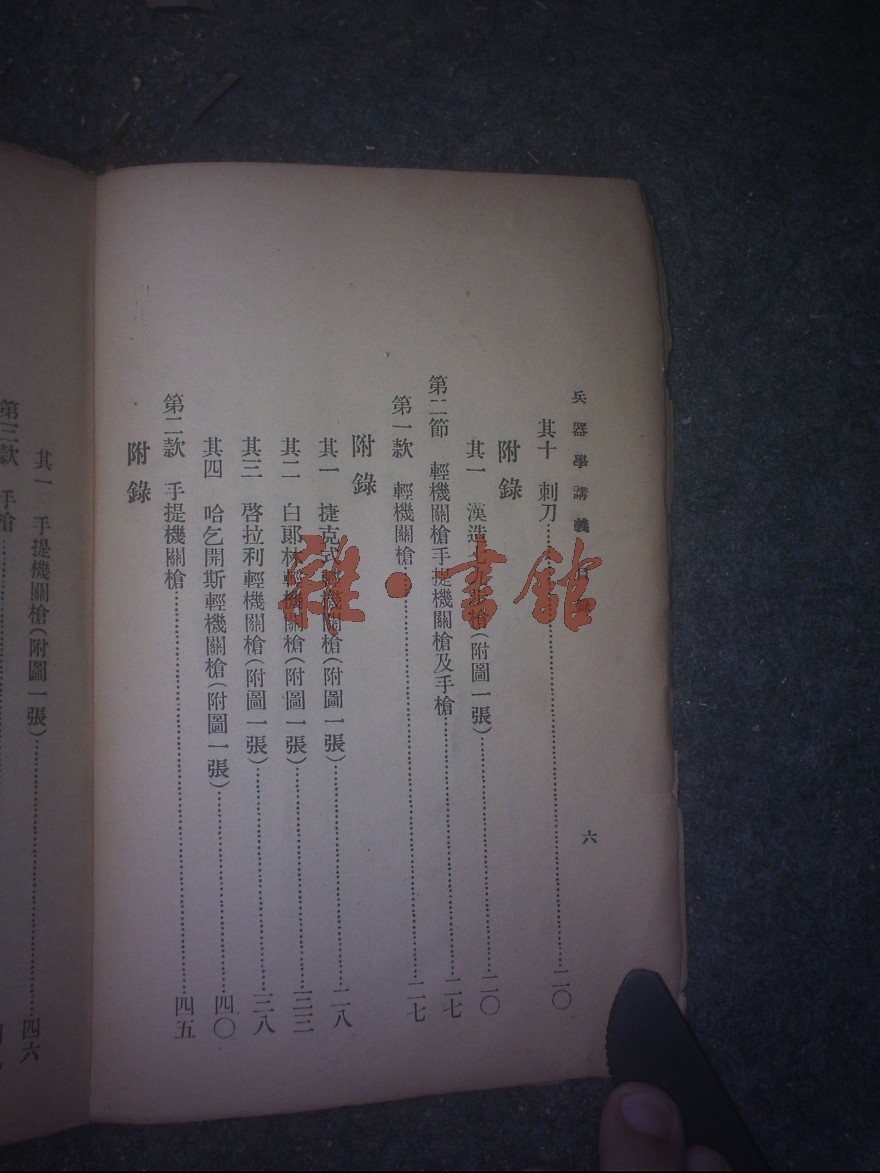 兵器學講義 目錄 六
其十 刺刀 二〇
附錄
其一 漢造七九步槍(附圖一張) 二〇
第二節 輕機關槍手提機關槍及手槍 二七
第一款 輕機關槍 二七
附錄
其一 捷克式輕機關槍(附圖一張) 二八
其二 白郞林輕機關槍(附圖一張) 三三
其三 啓拉利輕機關槍(附圖一張) 三八
其四 哈乞開斯輕機關槍(附圖一張) 四〇
第二款 手提機關槍 四五
附錄
其一 手提機關槍(附圖一張) 四六
第三款 手槍
雜·書館